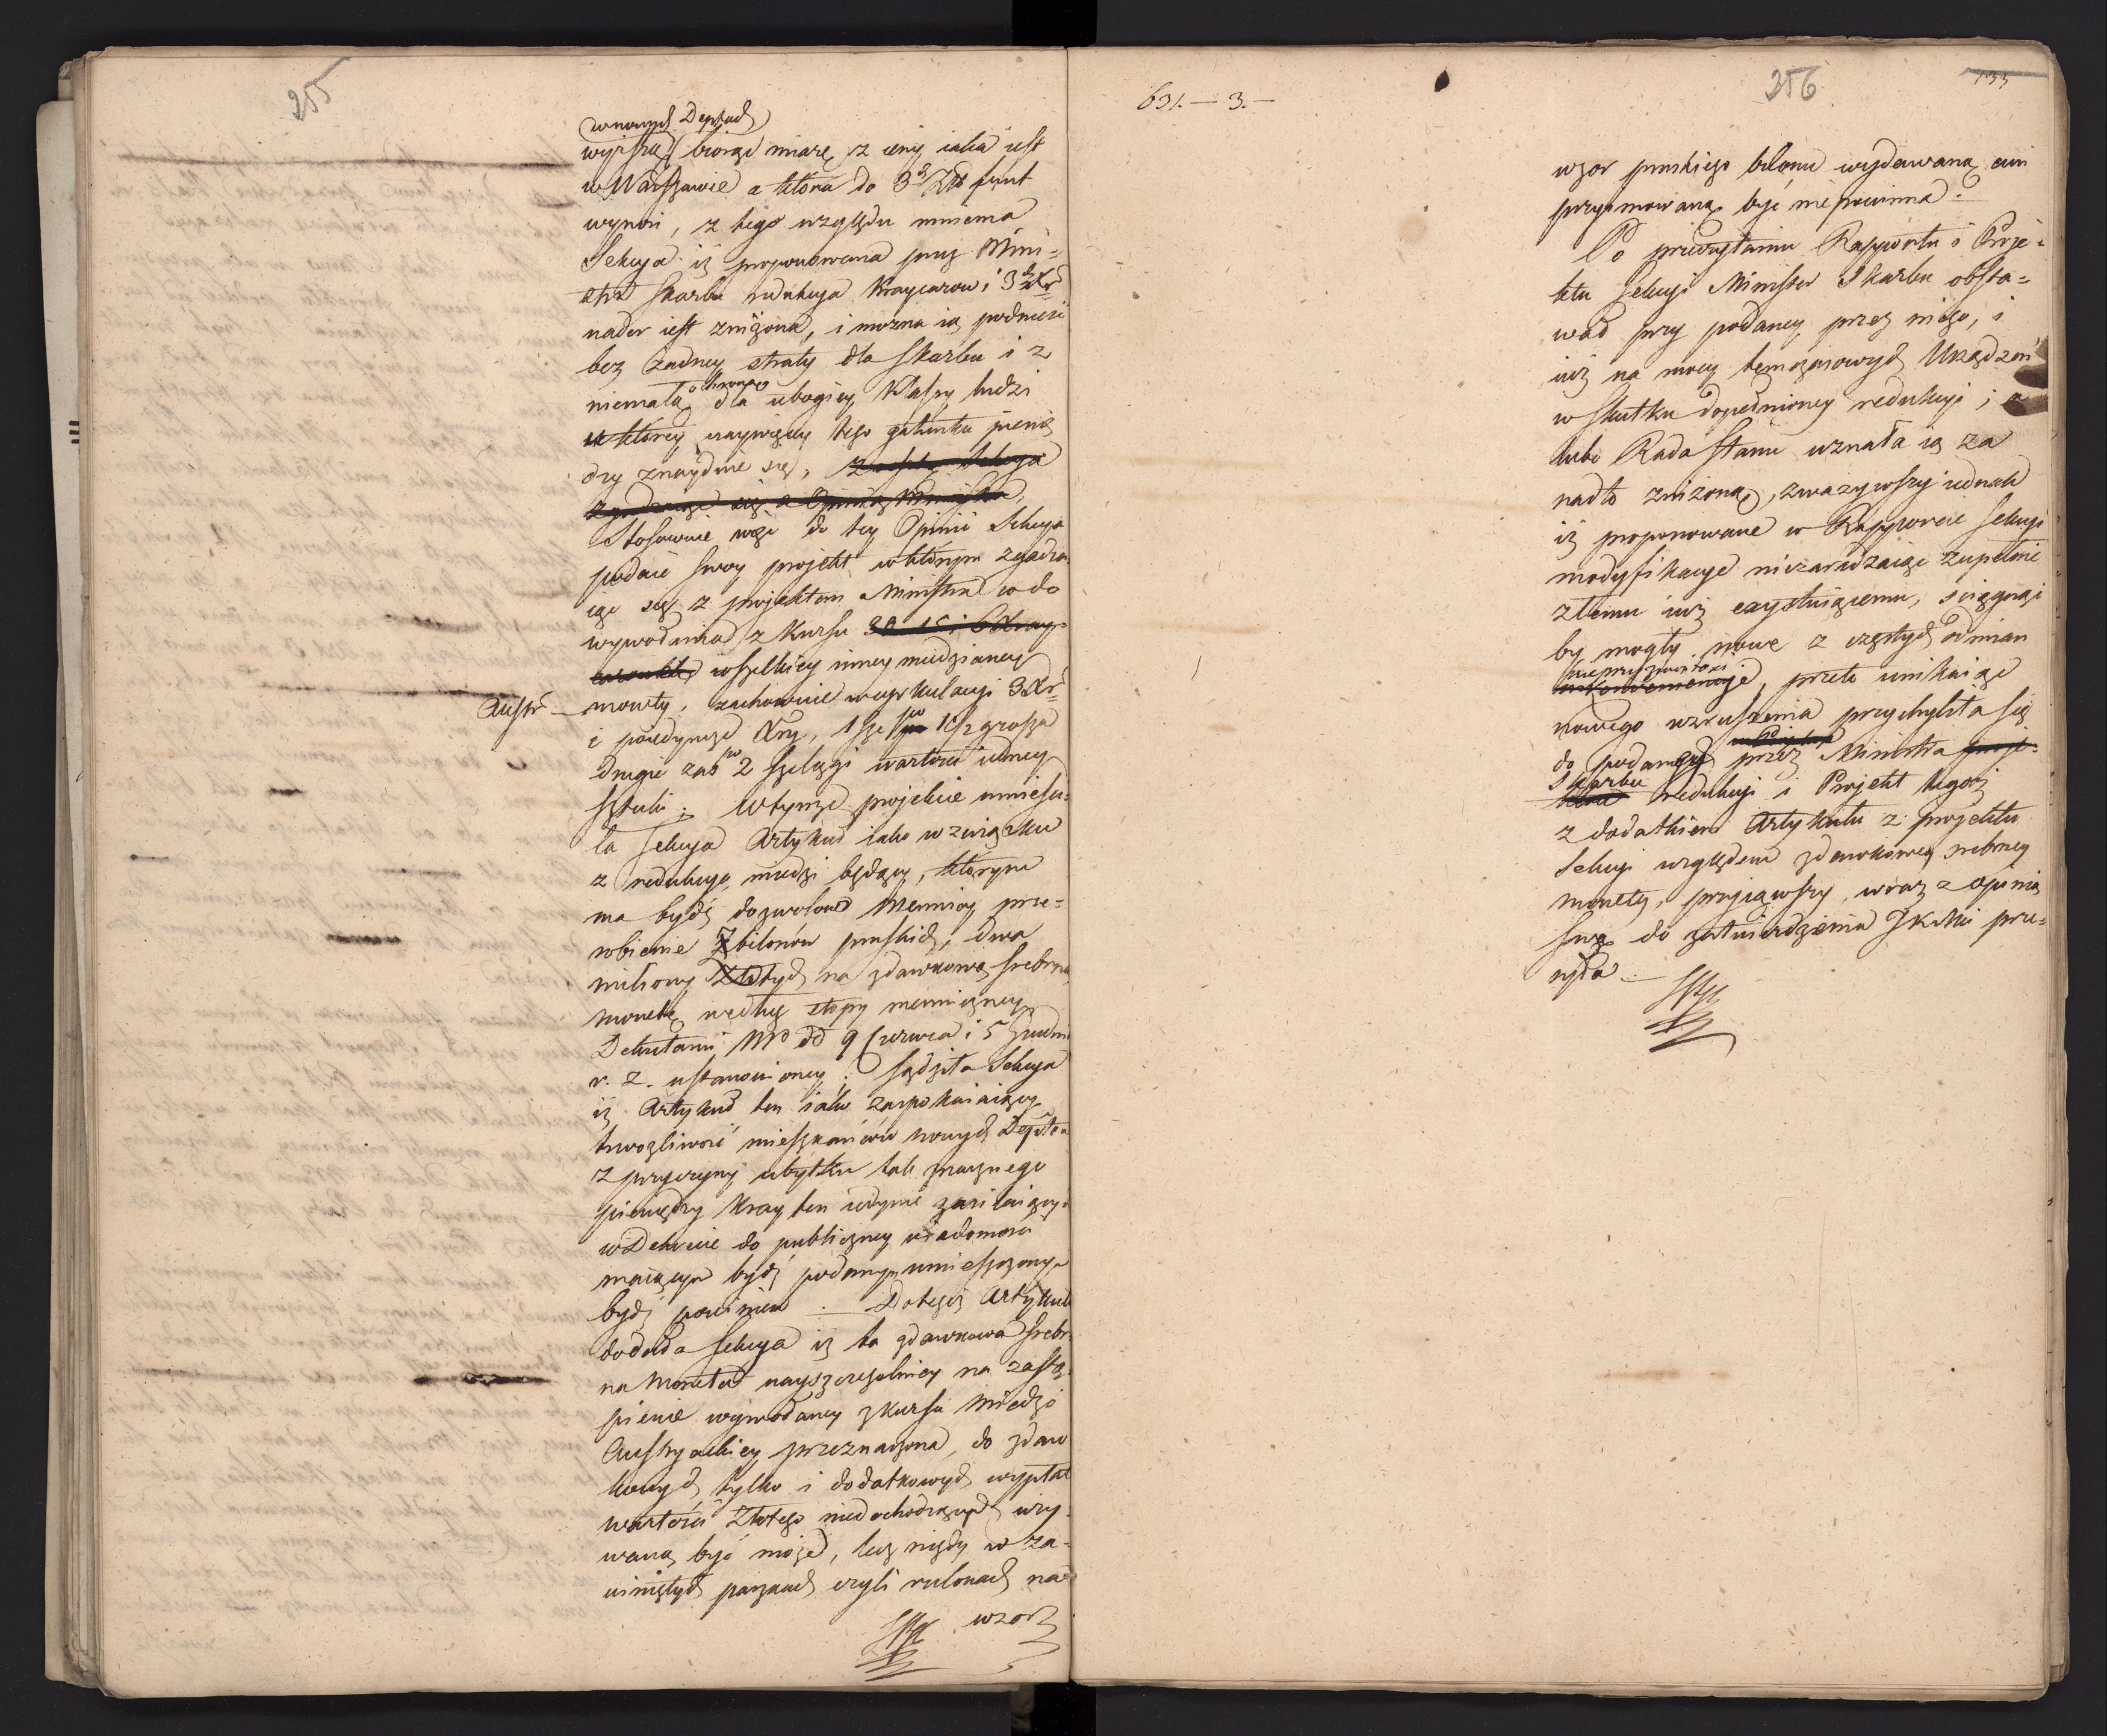 255
w nowych Depart.
wyższą biorąc miarę z ceny iaka iest
w Warszawie a która do 3 Złł funt
wynosi, z tego względu mniema
Sekcya iż proponowana przez Mini-
stra Skarbu redukcya Kraycarow i 3 Xr
nader iest zniżona, i można ią podnieść
bez żadney straty dla Skarbu i z
niemałą ochroną dla ubogiey Klassy ludzi
u którey naywięcey tego gatunku pienię
dzy znayduie się,
Stosownie więc do tey Opinii Sekcya
podaie swoy projekt w którym zgadza-
iąc się z projektem Ministra co do
wywołania z kursu 30 15 i 6 Kray-
wszelkiey inney miedzianey
Austr. — monety, zachowuie w cyrkulacyi 3 Xr
i poiedyncze Xry, 1sze po 1 1/2 grosza
drugie zaś po 2 szelągi wartości iedney
sztuki. W tymże projekcie umieści-
ła Sekcya Artykuł iako w związku
z redukcyą miedzi będący, którym
ma bydź dozwolone Mennicy prze-
robienie z bilonów pruskich, dwa
miliony Złotych na zdawkową srebrną
monetę według stopy menniczney
Dekretami NP dd 9 Czerwca i 5 Grudni
r. z. ustanowioney. Sądziła Sekcya
iż Artykuł ten iako zaspokaiaiący
trwożliwość mieszkańców nowych Deptów
z przyczyny ubytku tak znacznego
pieniędzy Kray ten iedynie zasilaiących
w Dekrecie do publiczney wiadomości
maiącym bydź podanym umieszczony
bydź powinien. — Do tegoż Artykułu
dodała Sekcya iż ta zdawkowa srebr-
na Moneta nayszczegolniey na zastą-
pienie wywołaney z kursu Miedzi
Austryackiey przeznaczona, do zdaw
kowych tylko i dodatkowych wypłat
wartości Złotego niedochodzących uży-
waną być może, lecz nigdy w za-
winiętych paczkach czyli rulonach na
wzor
631. — 3. —
256
133
wzor pruskiego bilonu wydawaną ani
przyimowaną być nie powinna.
Po przeczytaniu Rapportu i Proje-
ktu Sekcyi Minister Skarbu obsta-
wał przy podaney przez niego, i
iuż na mocy temczasowych Urządzeń
w skutku dopełnioney redukcyi; a
lubo Rada Stanu uznała ią za
nadto zniżoną, zważywszy iednak
iż proponowane w Rapporcie Sekcyi
modyfikacye niezaradzaiąc zupełnie
złemu iuż exystuiącemu, ściągnąć
by mogły nowe z częstych odmian
nieprzyzwoitości
inkonweniencye, przeto unikaiąc
nowego wzruszenia przychyliła się
do podaney przez Ministra proje-
Skarbu redukcyi i Projekt tegoż
z dodatkiem Artykułu z projektu
Sekcyi względem zdawkowey srebrney
monety, przyiąwszy, wraz z opinią
swą do zatwierdzenia JKMci prze-
syła. —